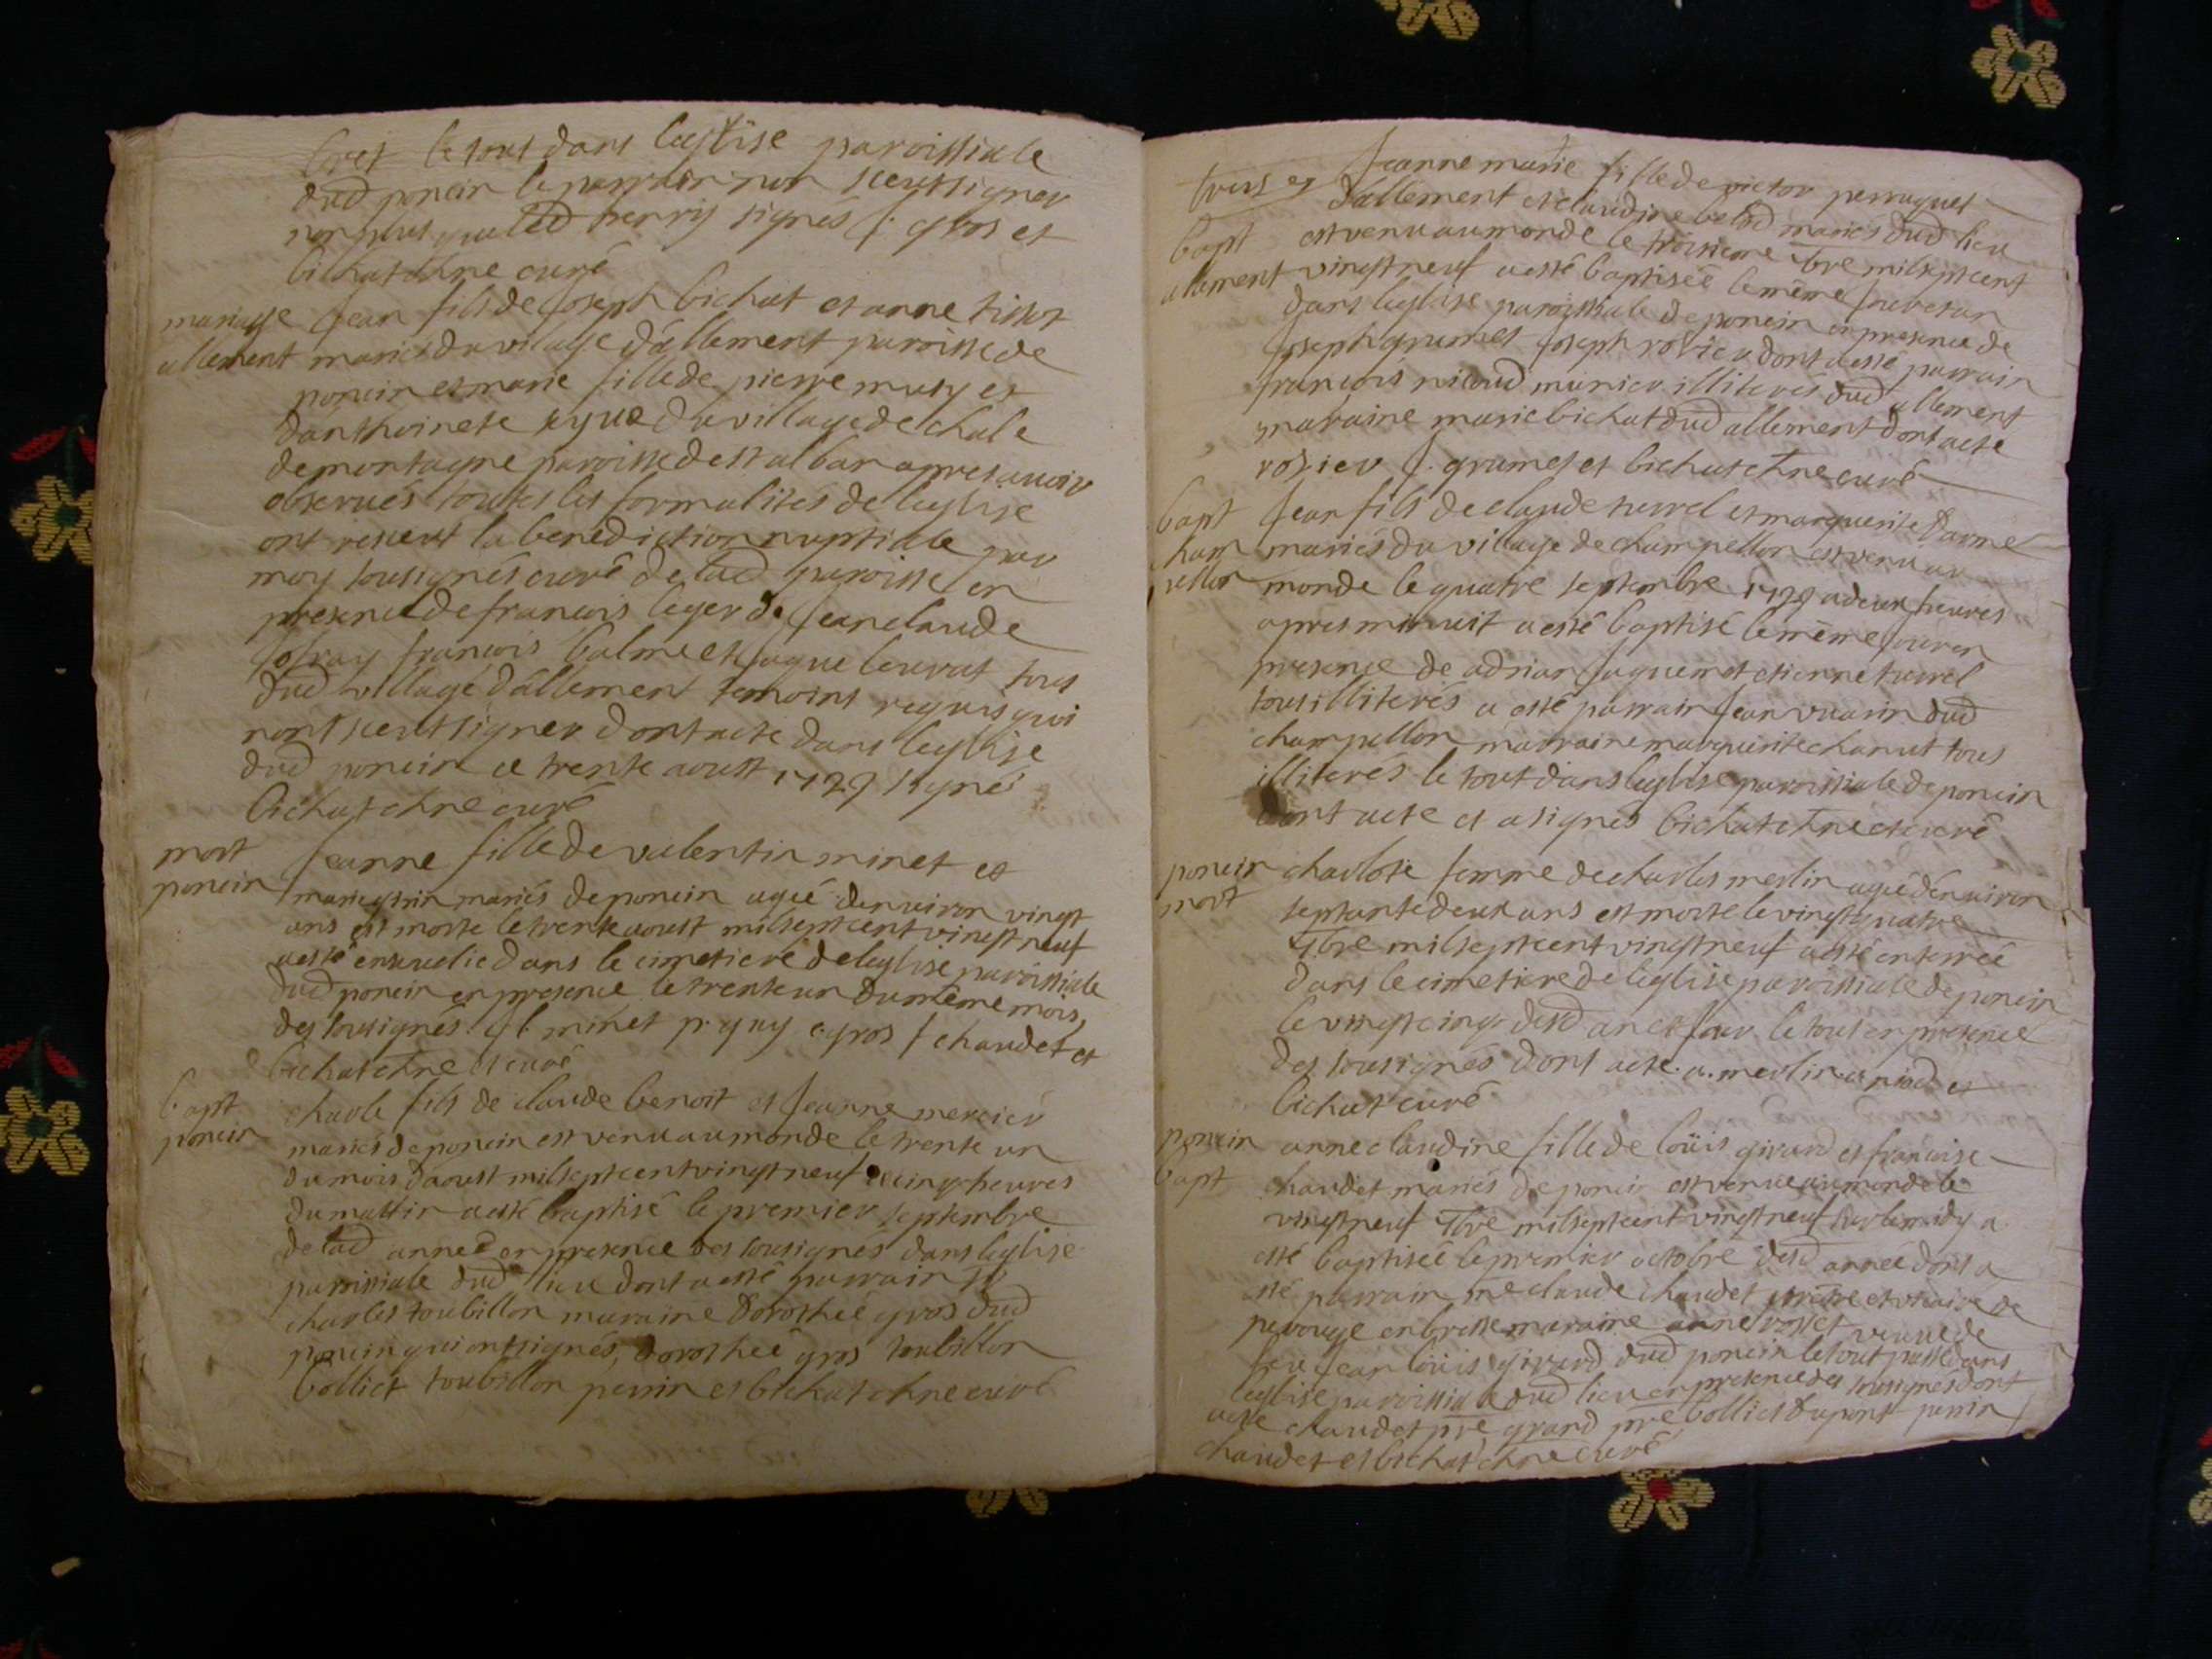 boret le tout dans leglise paroissiale
dud poncin le parrain non sceut signer
non plus que led henry signés f. gros et
bichat chne curé
mariage jean fils de joseph bichat et anne tissot
allement mariés du vilage dâllement paroisse de
poncin et marie fille de pierre musy et
danthoinete du village de chale
de montagne paroisse dest alban apres avoir
observés toutes les formalités de leglise
ont receut la benediction nuptiale par
moy sousignés curé de lad paroisse en
presence de francois leger de jean claude
francois balme et jaque beurat tous
dud village dâllement temoins requis qui
nont sceut signer dont acte dans leglise
dud poncin ce trente aoust 1729 signé
bichat chne curé
mort jeanne fille de valentin minet et
poncin marie mariés de poncin agée denviron vingt
ans est morte le trente aoust mil sept cent vingt neuf
a esté ensevelie dans le cimetiere de leglise paroissiale
dud poncin en presence le trente un du même mois
des sousignés. minet p. guy c. gros f chaudet et
bichat chne et curé
bapt charle fils de claude benoit et jeanne mercier
poncin mariés de poncin est venu au monde le trente un
du mois daoust mil sept cent vingt neuf a cinq heures
du mattin a esté baptisé le premier septembre
de lad année en presence des sousignés dans leglise
paroissiale dud lieu dont a esté parrain
charles toubillon maraine dorothée gros dud
poncin qui ont signés, dorothée gros toubillon
bolliet toubillon perrin et bichat chne curé
jeanne marie fille de victor perruquet
bapt dallement et claudine mariés dud lieu
allement est venu au monde le troisieme 7bre mil sept cent
vingt neuf a esté baptisée le même jour
dans leglise paroissiale de poncin en presence de
joseph grumet joseph rosier dont a esté parrain
francois nicoud munier illiterés dud allement
maraine marie bichat dud allement dont acte
rosier J. grumet et bichat chne curé
bapt jean fils de claude turrel et marguerite darme
cham mariés du village de champellon est venu au
pellon monde le quatre septembre 1729 a deux heures
apres minuit a esté baptisé le même jour en
presence de adrian jaquemet etienne turrel
tous illiterés a esté parrain jean vuarin dud
champellon marraine marguerite chanut tous
illiterés le tout dans leglise paroissiale de poncin
dont acte et a signés bichat chne et curé
poncin charlote femme de charles merlin agée denviron
mort septante deux ans est morte le vingt quatre
7bre mil sept cent vingt neuf a esté enterrée
dans le cimetiere de leglise paroissiale de poncin
le vingt cinq desd an et jour le tout en presence
des sousignés dont acte. a. merlin. et
bichat curé
poncin anne claudine fille de loüis girard et francoise
bapt chaudet mariés de poncin est venue au monde le
vingt neuf 7bre mil sept cent vingt neuf sur le midy a
esté baptisée le premier octobre desd année dont a
esté parrain me claude chaudet prêtre et vicaire de
perouge en bresse maraine anne veuve de
feu jean loüis girard dud poncin le tout passé dans
leglise paroissiale dud lieu en presence des sousignés dont
acte chaudet pre girard pre bolliet dupont perrin
chaudet et bichat chne curé